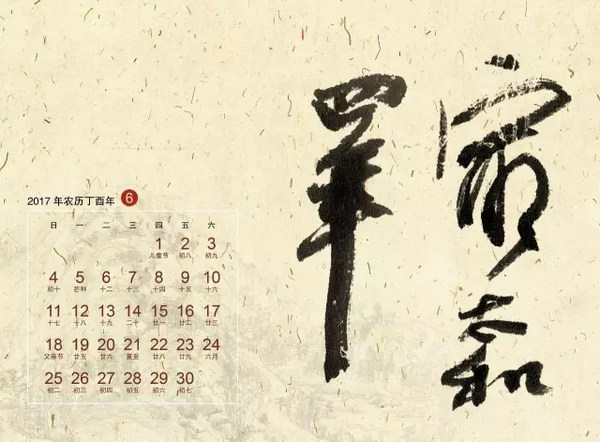 四年
2017 年农历丁酉年 6
日 一 二 三 四 五 六
1 2 3
儿童节 初八 初九
4 5 6 7 8 9 10
初十 芒种 十二 十三 十四 十五 十六
11 12 13 14 15 16 17
十七 十八 十九 二十 廿一 廿二 廿三
18 19 20 21 22 23 24
父亲节 廿五 廿六 夏至 廿八 廿九 六月
25 26 27 28 29 30
初二 初三 初四 初五 初六 初七